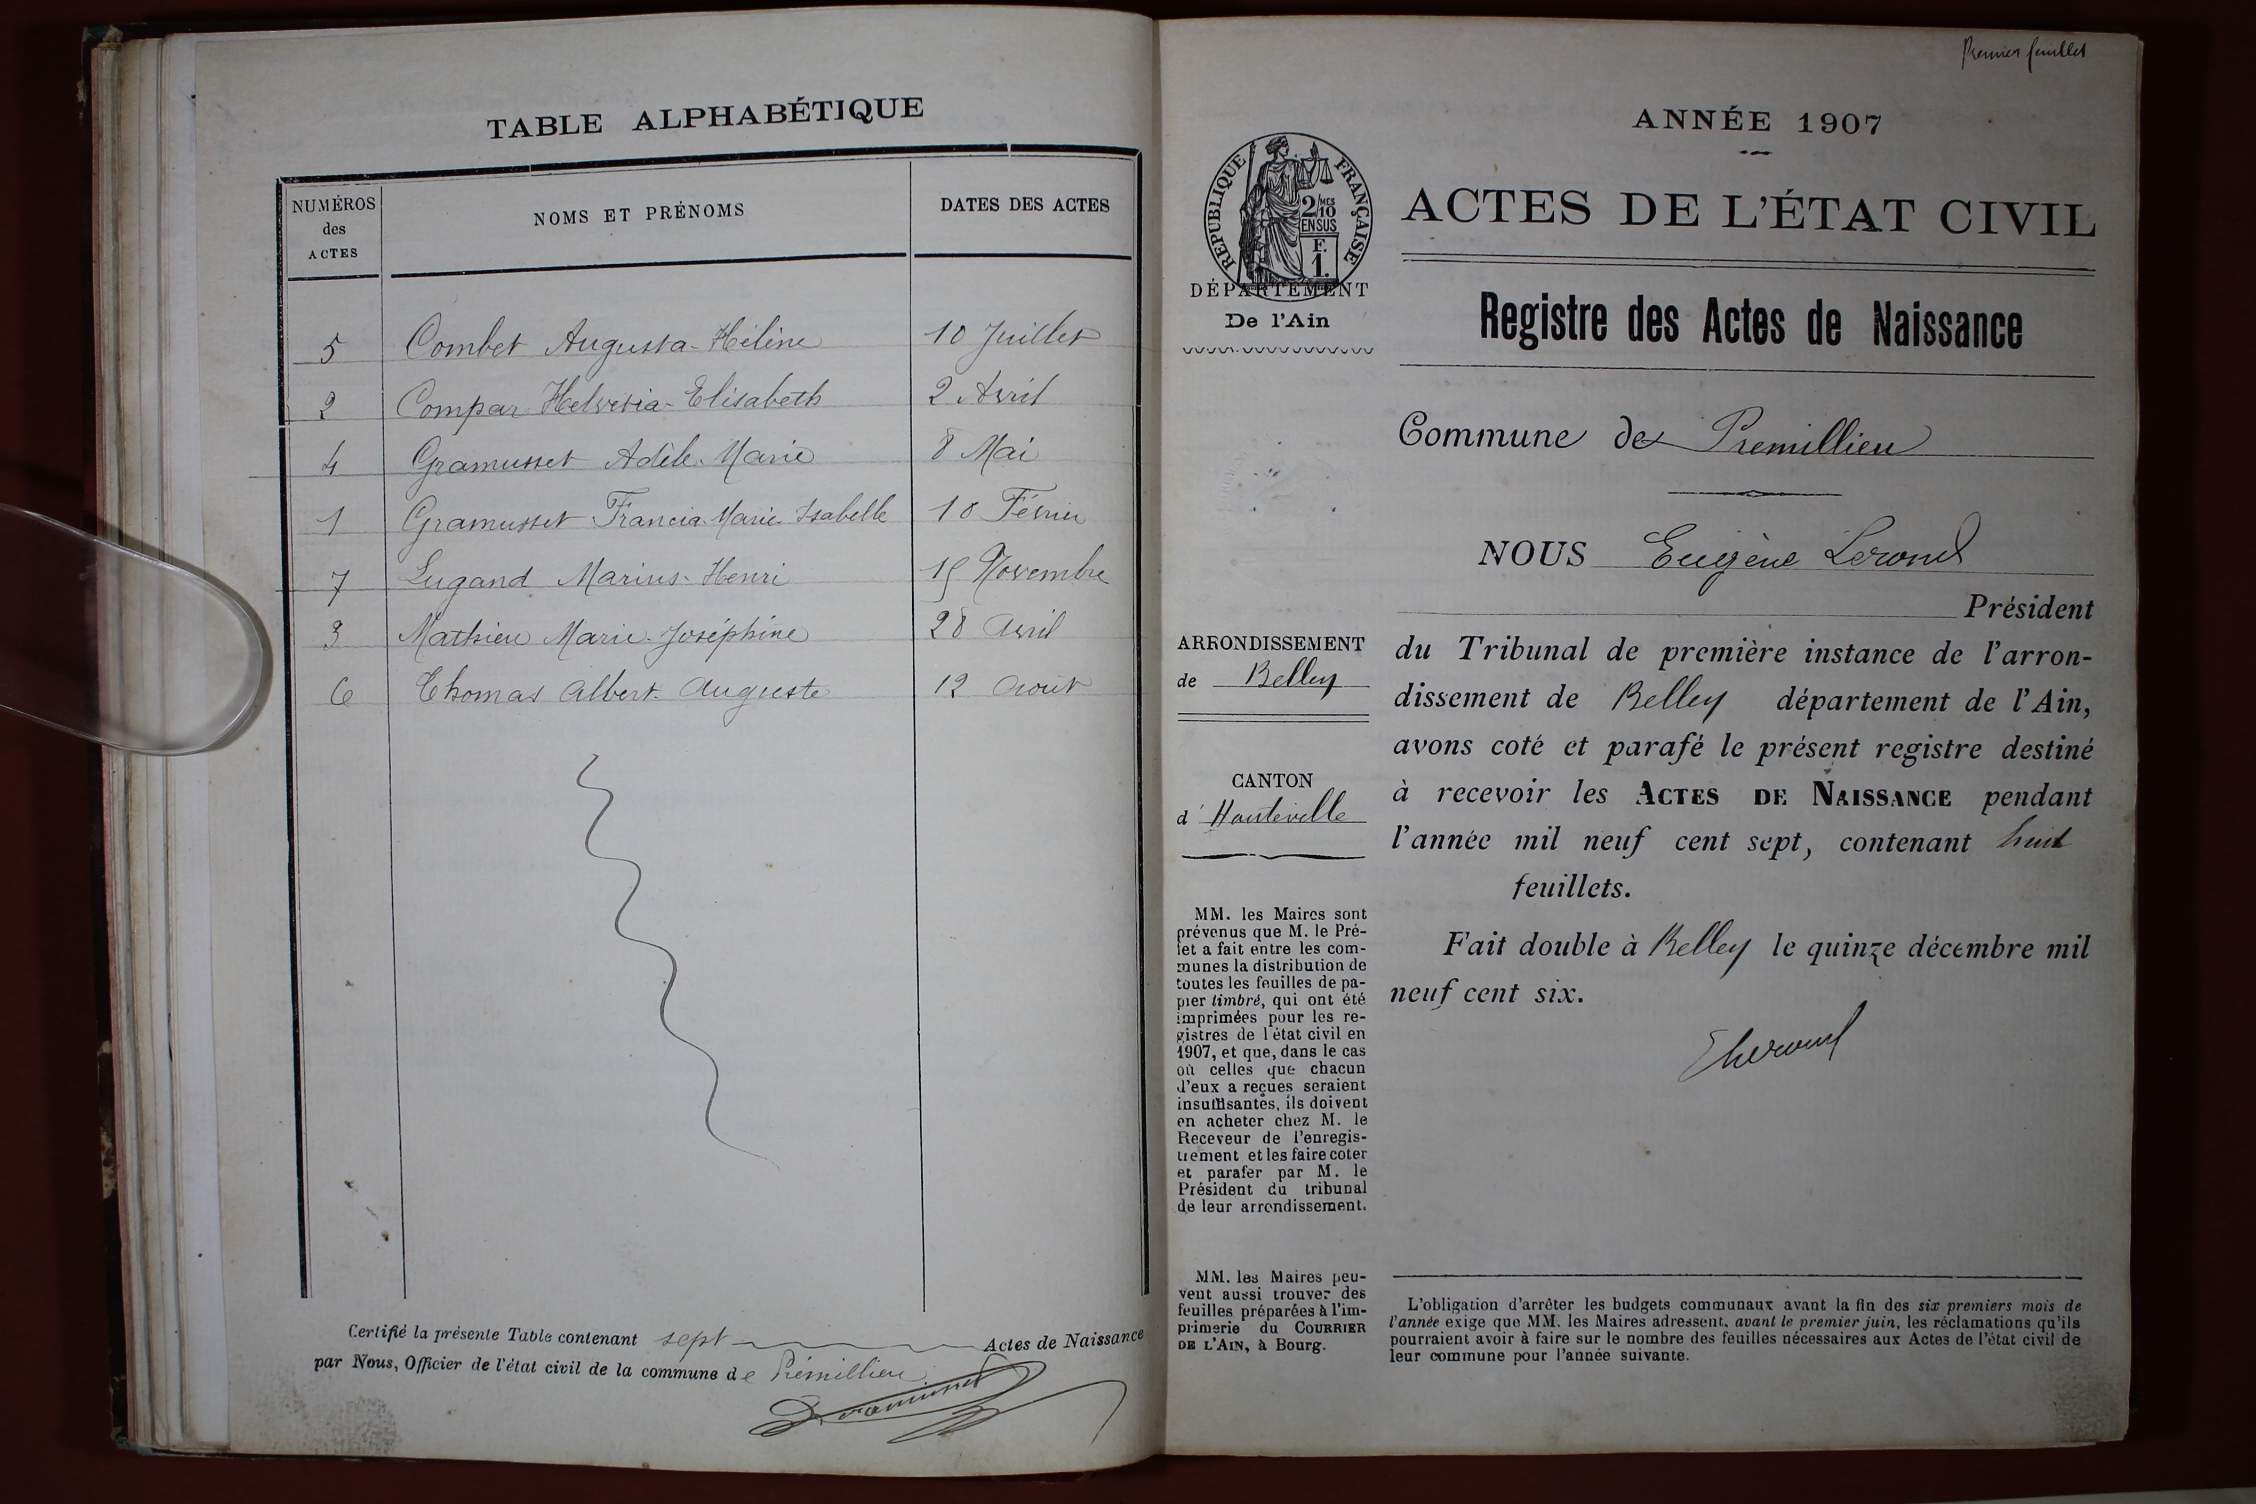 TABLE ALPHABÉTIQUE
NUMÉROS des ACTES
NOMS ET PRÉNOMS
DATES DES ACTES
5 Combet Augusta-Hélène 10 Juillet
2 Compar Helvetia-Elisabeth 2 Avril
4 Gramusset Adèle-Marie 8 Mai
1 Gramusset Francia-Marie-Isabelle 18 Février
7 Lugand Marius-Henri 15 Novembre
3 Mathieu Marie-Joséphine 28 Avril
6 Thomas Albert-Auguste 12 Août
Certifié la présente Table contenant sept Actes de Naissance
par Nous, Officier de l'état civil de la commune de Prémillieu
Premier feuillet
ANNÉE 1907
RÉPUBLIQUE FRANÇAISE
2/10 MES
EN SUS
F.
1.
DÉPARTEMENT
De l'Ain
ARRONDISSEMENT
de Belley
CANTON
d'Hauteville
MM. les Maires sont
prévenus que M. le Pré-
fet a fait entre les com-
munes la distribution de
toutes les feuilles de pa-
pier timbré, qui ont été
imprimées pour les re-
gistres de l'état civil en
1907, et que, dans le cas
où celles que chacun
d'eux a reçues seraient
insuffisantes, ils doivent
en acheter chez M. le
Receveur de l'enregis-
trement et les faire coter
et parafer par M. le
Président du tribunal
de leur arrondissement.
MM. les Maires peu-
vent aussi trouver des
feuilles préparées à l'im-
primerie du COURRIER
DE L'AIN, à Bourg.
ACTES DE L'ÉTAT CIVIL
Registre des Actes de Naissance
Commune de Premillieu
NOUS Eugène Lerond
Président
du Tribunal de première instance de l'arron-
dissement de Belley département de l'Ain,
avons coté et parafé le présent registre destiné
à recevoir les ACTES DE NAISSANCE pendant
l'année mil neuf cent sept, contenant huit
feuillets.
Fait double à Belley le quinze décembre mil
neuf cent six.
L'obligation d'arrêter les budgets communaux avant la fin des six premiers mois de
l'année exige que MM. les Maires adressent, avant le premier juin, les réclamations qu'ils
pourraient avoir à faire sur le nombre des feuilles nécessaires aux Actes de l'état civil de
leur commune pour l'année suivante.